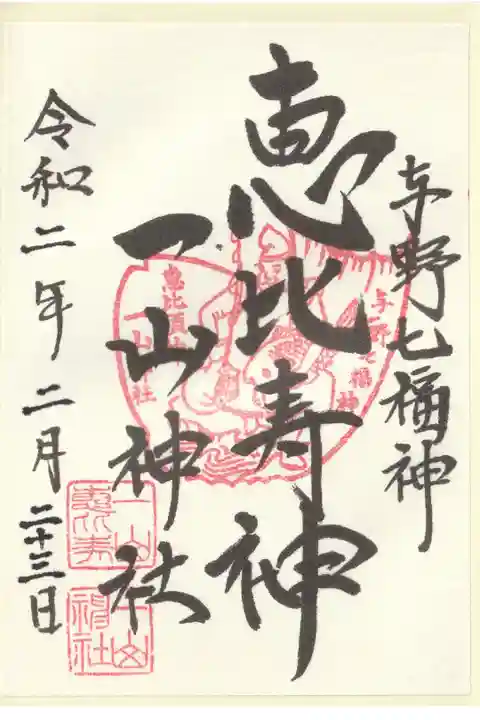 与野七福神
恵比寿神
一山神社
令和二年二月二十三日
与野七福神
恵比須
一山神社
一山神社
恵比寿